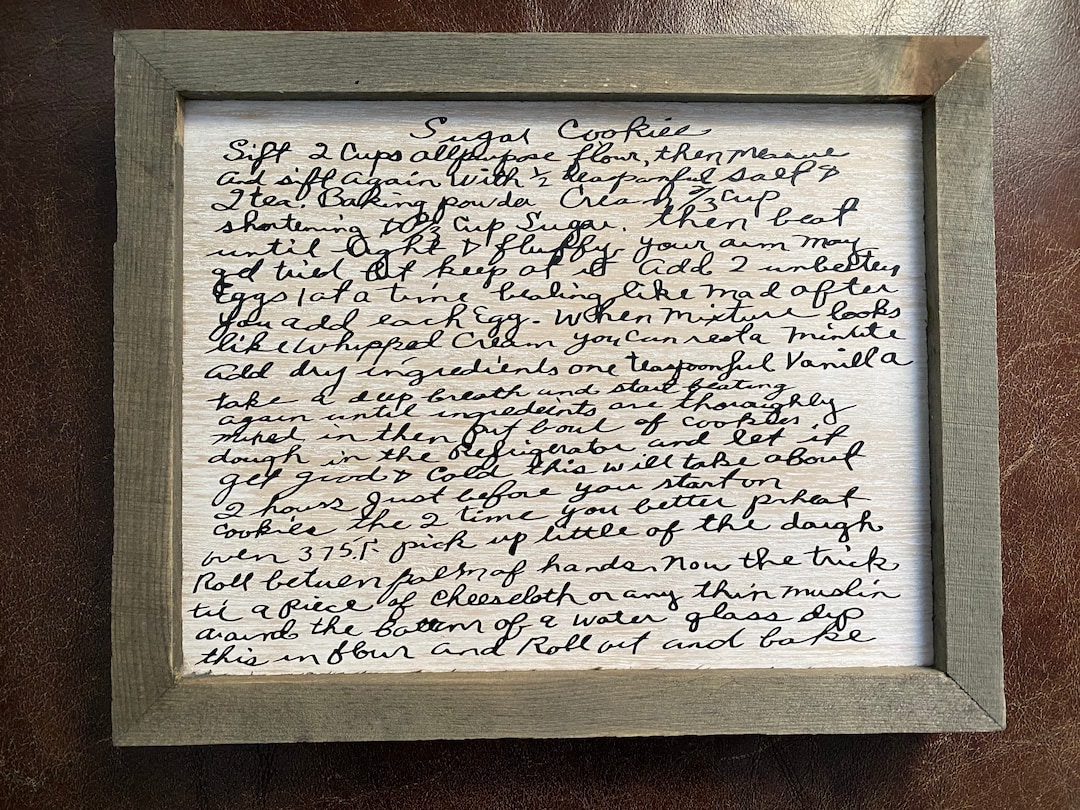 Sugar Cookies
Sift 2 Cups allpurpose flour, then measure
and sift again with 1/2 teaspoonful salt &
2 tea. Baking powder Cream 2/3 cup
shortening to 2/3 Cup Sugar. then beat
until light & fluffy. your arm may
get tired but keep at it add 2 unbeaten
Eggs 1 at a time beating like mad after
you add each Egg. When mixture looks
like Whipped Cream you can rest a minute
add dry ingredients one teaspoonful Vanilla
take a deep breath and start beating
again until ingredents are thoroughly
mixed in then put bowl of cookies
dough in the Refrigerator and let it
get good & Cold this will take about
2 hours Just before you start on
cookies the 2 time you better preheat
oven 375 F. pick up little of the dough
Roll between palm of hands. Now the trick
tie a Piece of Cheesecloth or any thin muslin
around the Bottem of a water glass dip
this in flour and Roll out and bake